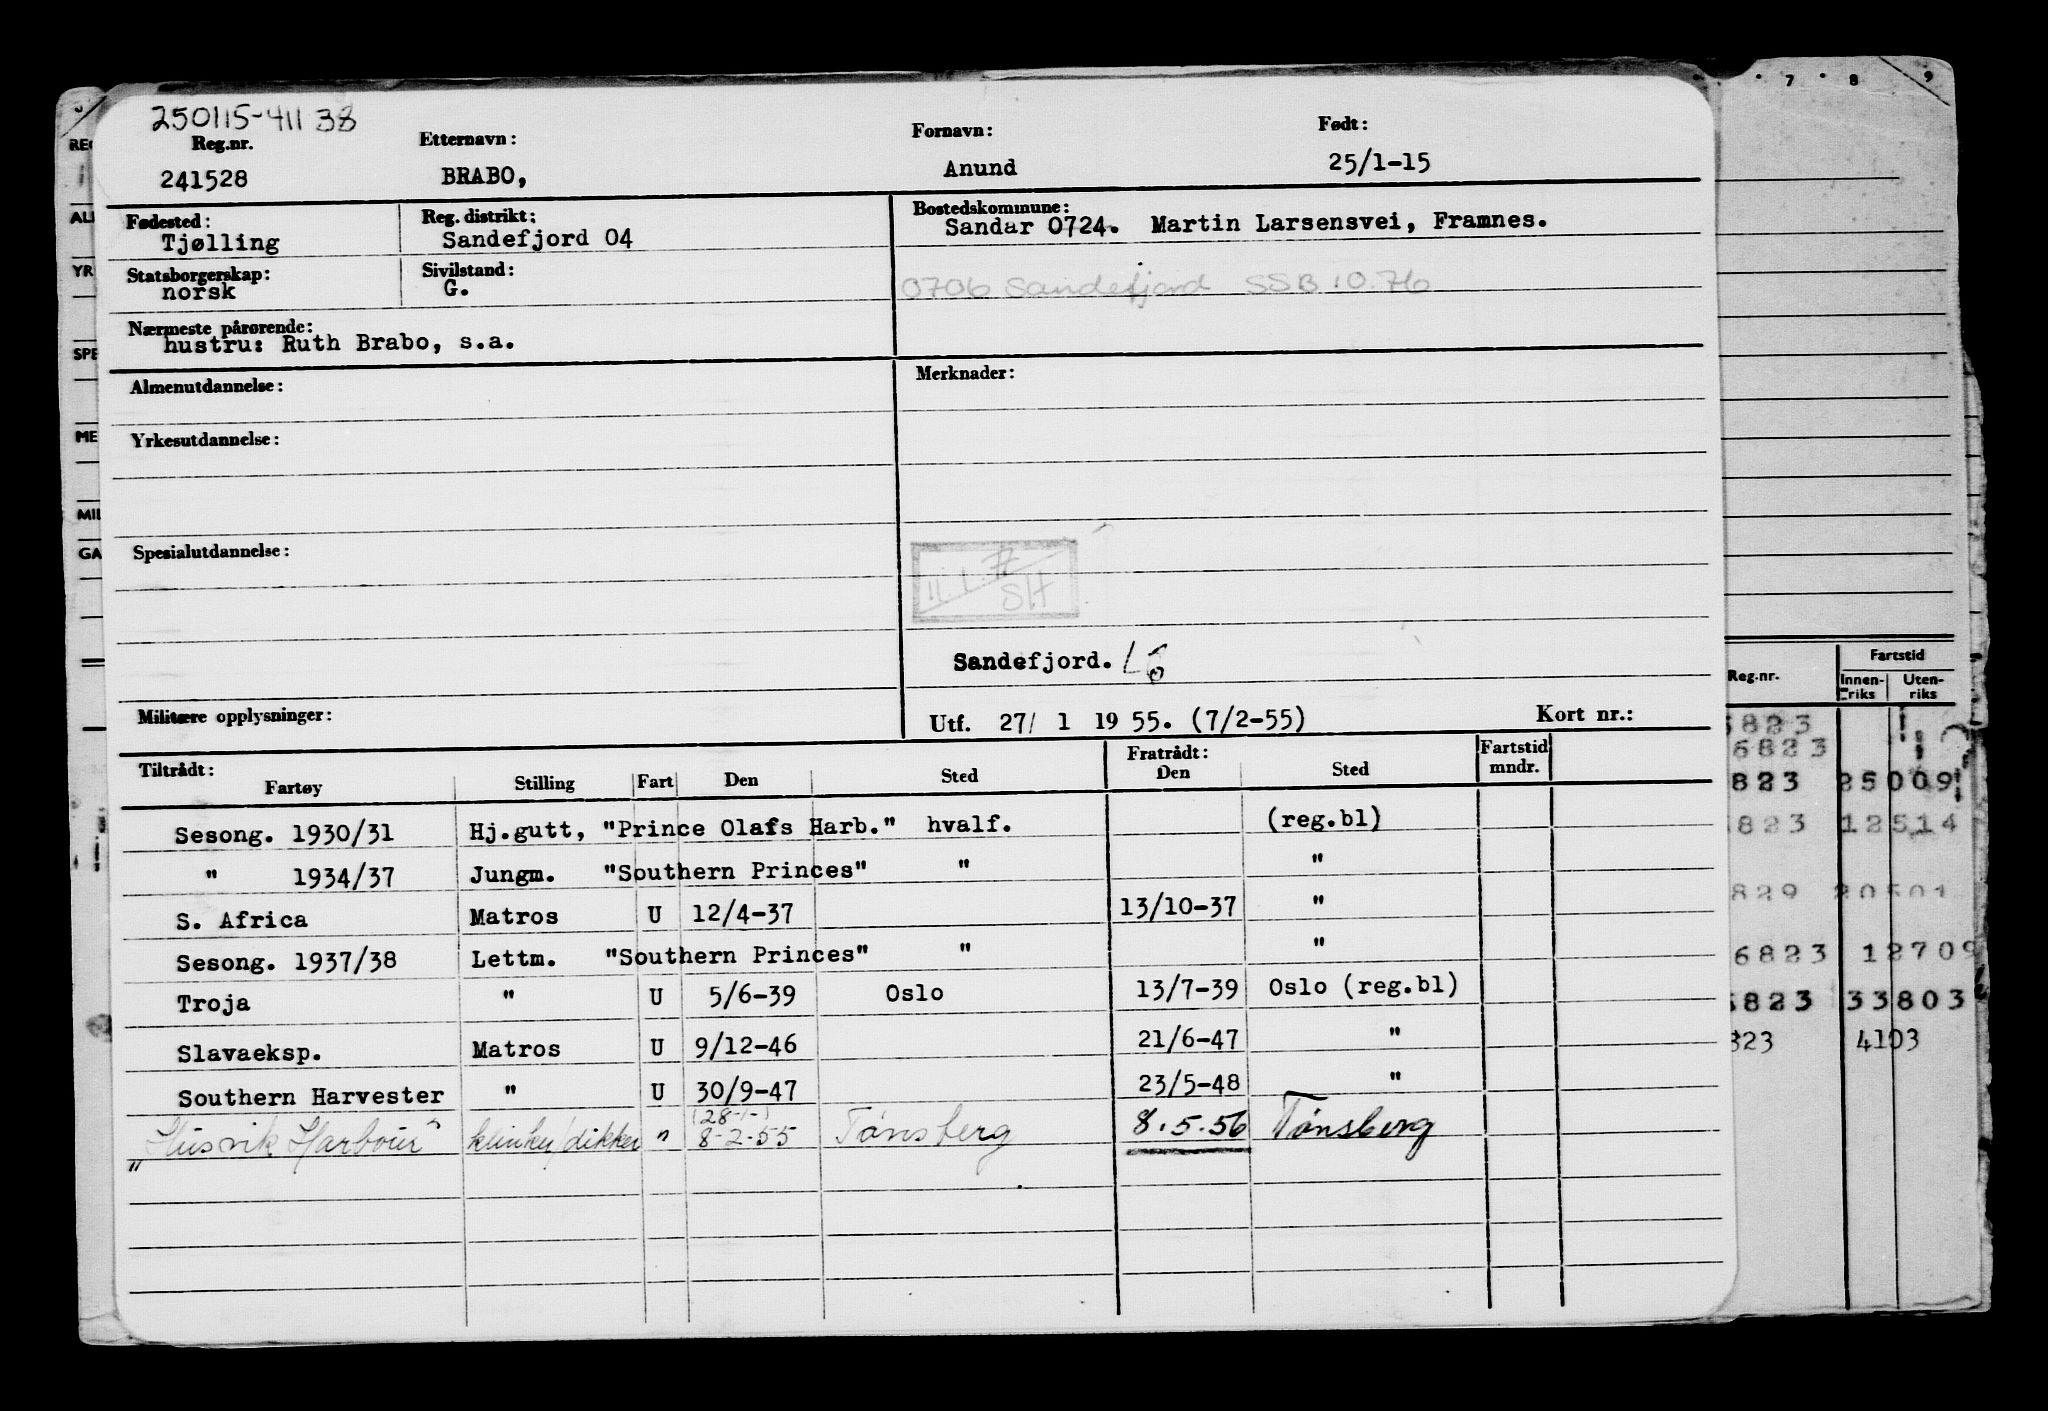 250115-411 38
Reg.nr. Etternavn: Fornavn: Født:
241528 BRABO, Anund 25/1-15
Fødested: Reg. distrikt: Bostedskommune:
Tjølling Sandefjord 04 Sandar 0724. Martin Larsensvei, Framnes.
Statsborgerskap: Sivilstand:
norsk G. 0706 Sandefjord SSB 10.76
Nærmeste pårørende:
hustru: Ruth Brabo, s.a.
Almenutdannelse: Merknader:
Yrkesutdannelse:
Spesialutdannelse:
SH
Sandefjord.
Militære opplysninger: Utf. 27/ 1 19 55. (7/2-55) Kort nr.:
Tiltrådt: Fratrådt: Fartstid
Fartøy Stilling Fart Den Sted Den Sted mndr.
Sesong. 1930/31 Hj.gutt, "Prince Olafs Harb." hvalf. (reg.bl)
" 1934/37 Jungm. "Southern Princes" " "
S. Africa Matros U 12/4-37 13/10-37 "
Sesong. 1937/38 Lettm. "Southern Princes" " "
Troja " U 5/6-39 Oslo 13/7-39 Oslo (reg.bl)
Slavaeksp. Matros U 9/12-46 21/6-47 "
Southern Harvester " U 30/9-47 23/5-48 "
(28-1-)
„Husvik Harbour" klinker/dikker " 8-2-55 Tønsberg 8.5.56 Tønsberg
7 8 9
REG
ALM
YR
SPE
ME
MIL
GA
Fartstid
Reg.nr. Innen-riks Uten-riks
823
6823
823 25009
823 12514
829 20501
6823 12709
823 33803
823 4103